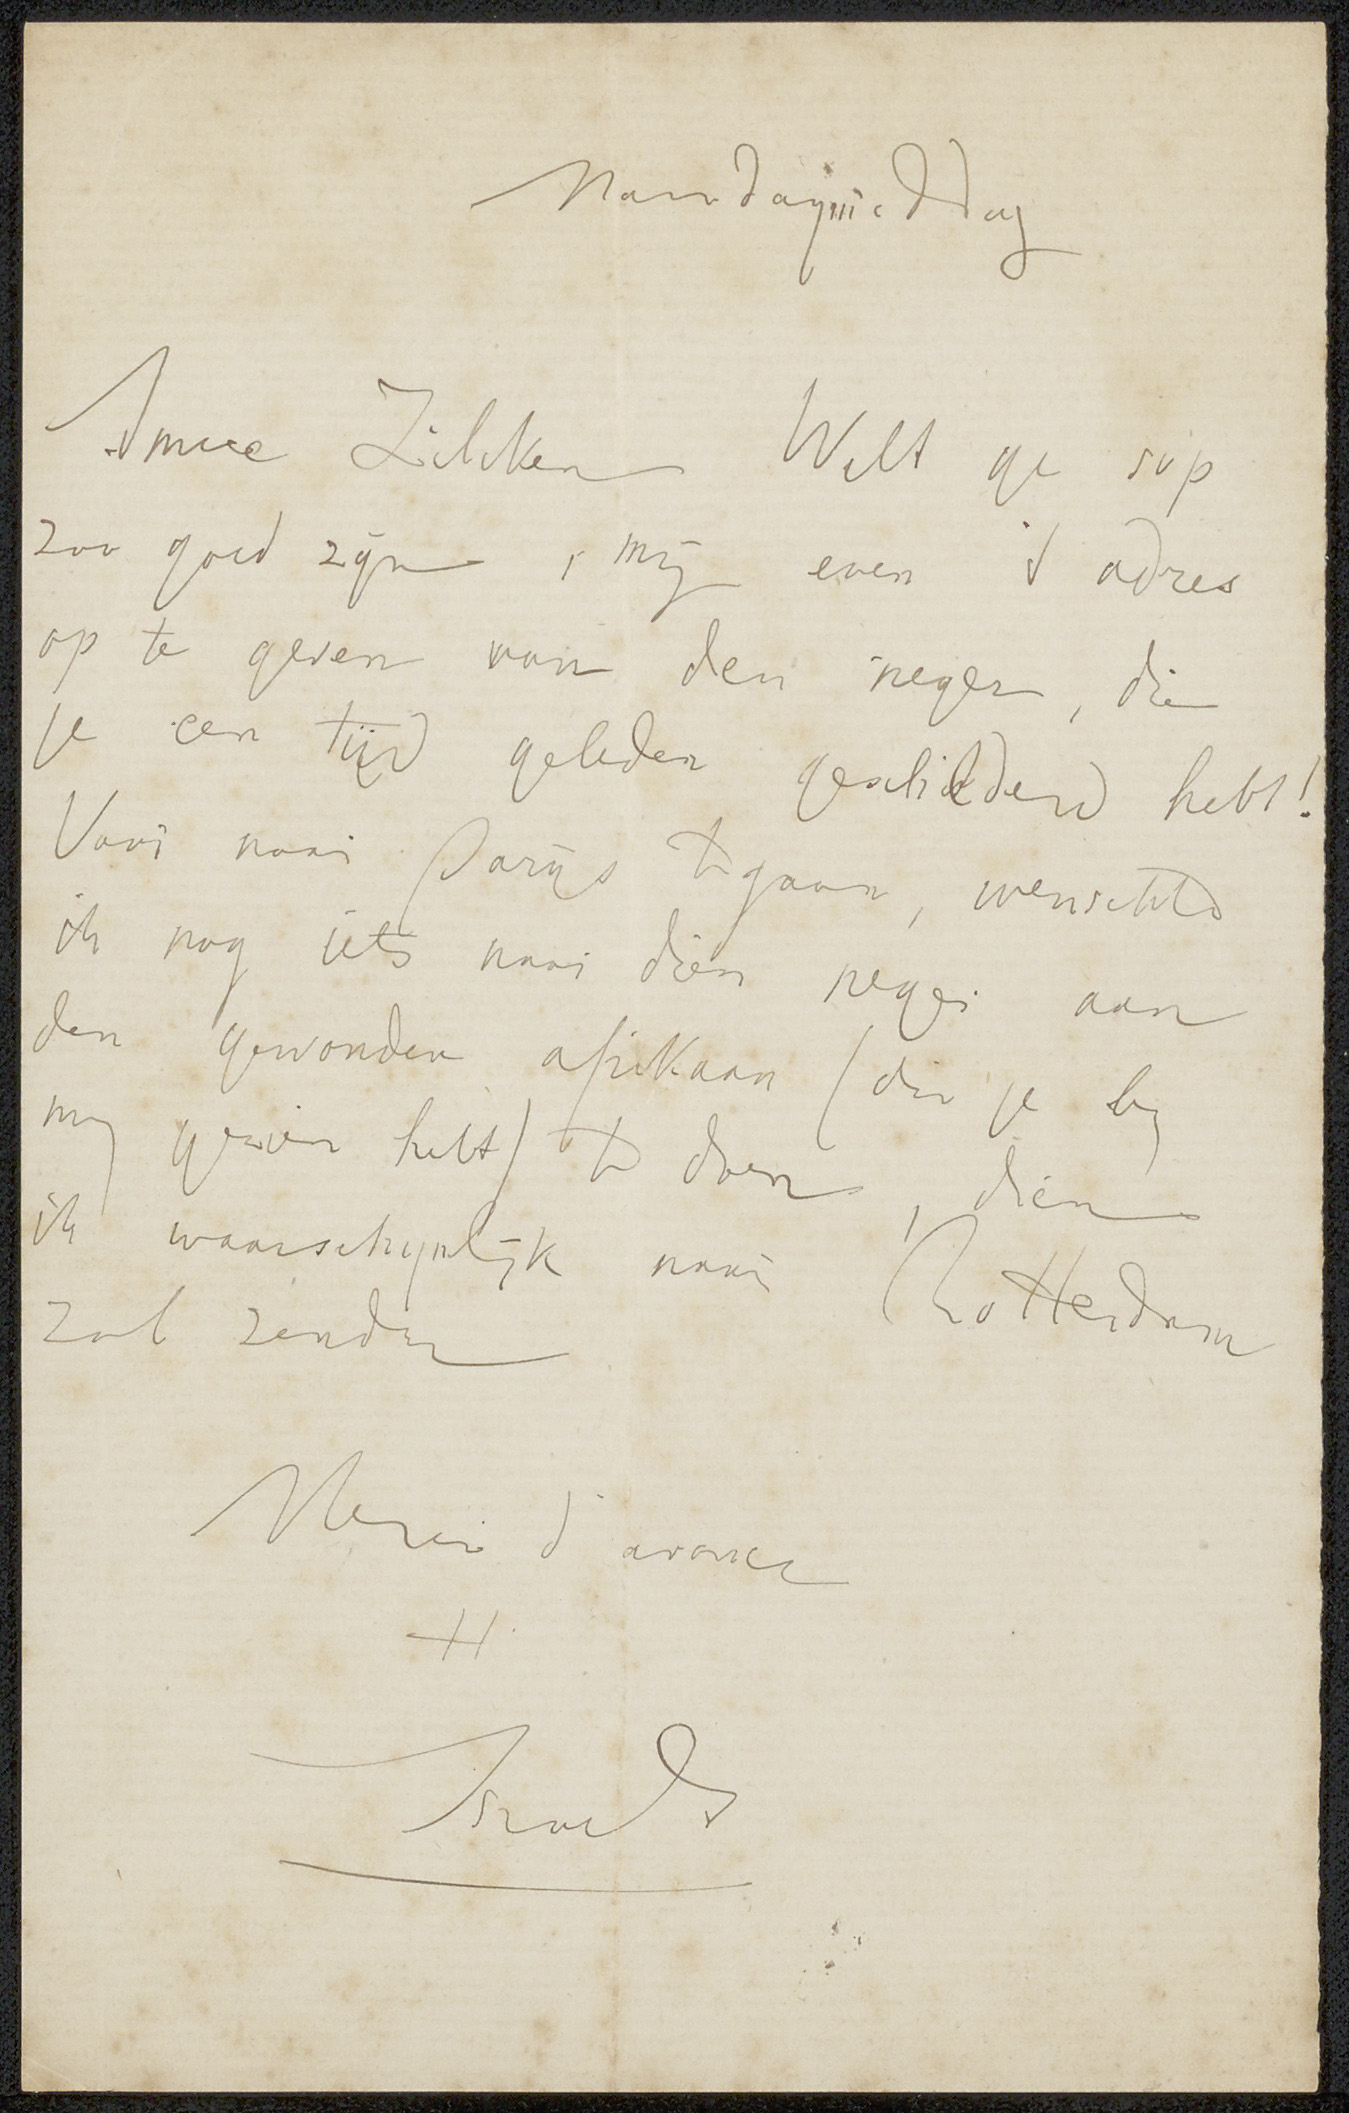 Maandagmiddag
Amice Zilcken Wilt ge svp
zoo goed zijn, mij even 't adres
op te geven van den neger, die
je een tijd geleden geschilderd hebt!
Voor naar Parijs te gaan, wenschte
ik nog iets naar dien neger aan
den gewonden afrikaan (die je bij
mij gezien hebt) te doen, dien
ik waarschijnlijk naar Rotterdam
zal zenden
Merci d'avance
tt
Israels